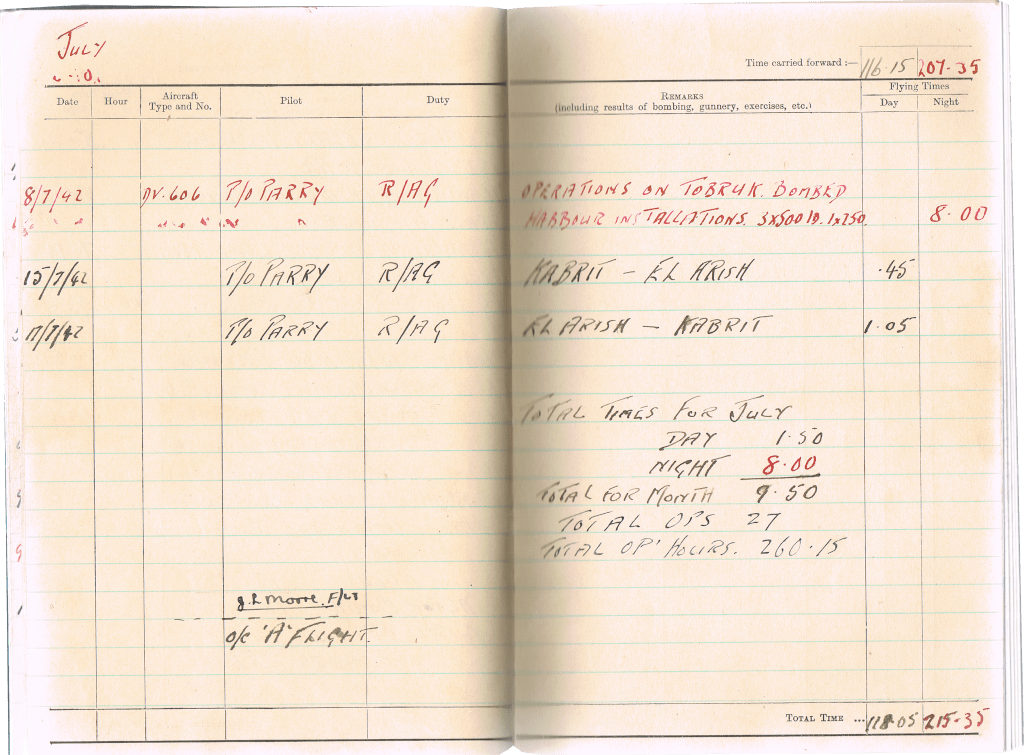 JULY
Time carried forward :— 116·15 207·35
Date Hour Aircraft Type and No. Pilot Duty REMARKS (including results of bombing, gunnery, exercises, etc.) Flying Times Day Night
8/7/42 DV.606 P/O PARRY R/AG OPERATIONS ON TOBRUK. BOMBED
HARBOUR INSTALLATIONS. 3x500lb. 1x250. 8·00
15/7/42 P/O PARRY R/AG KABRIT – EL ARISH ·45
17/7/42 P/O PARRY R/AG EL ARISH – KABRIT 1·05
TOTAL TIMES FOR JULY
DAY 1·50
NIGHT 8·00
TOTAL FOR MONTH 9·50
TOTAL OPS 27
TOTAL OP' HOURS. 260·15
J.L Moore. F/LT
O/C 'A' FLIGHT.
TOTAL TIME ... 118·05 215·35